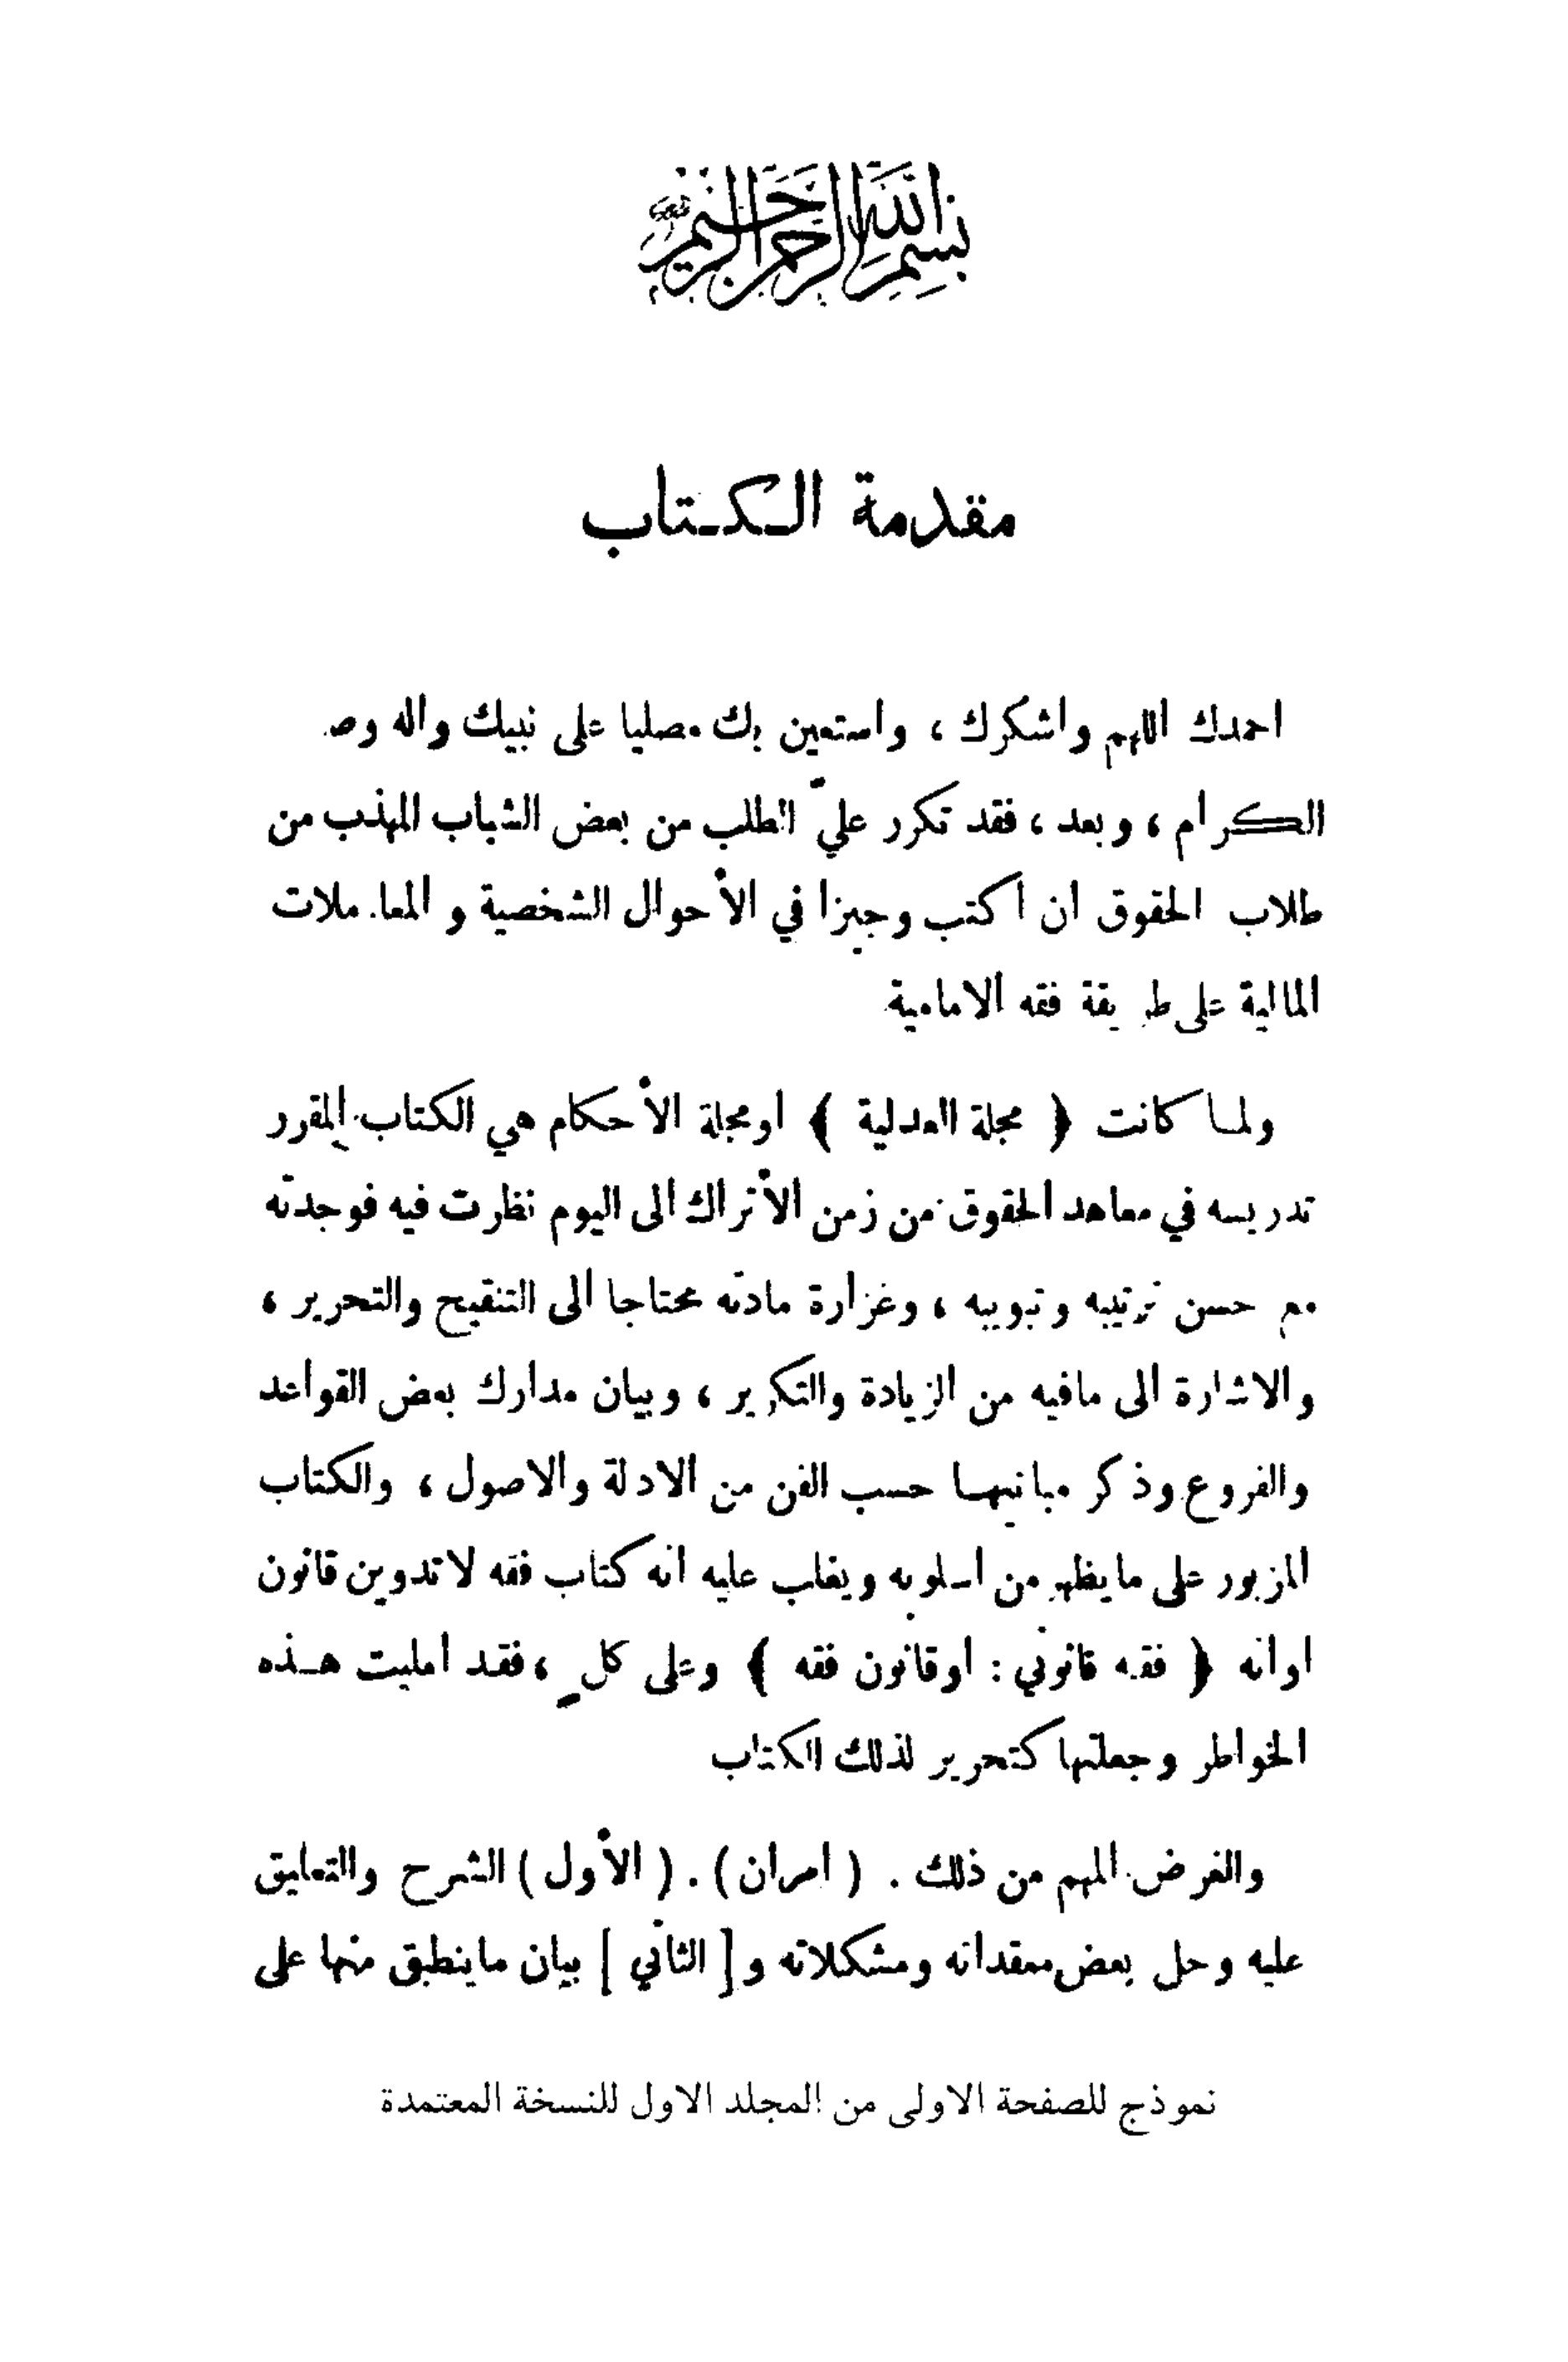 بسم الله الرحمن الرحيم
مقدمة الكتاب
احمدك اللهم واشكرك ، واستعين بك مصليا على نبيك واله وص
الكرام ، وبعد ، فقد تكرر عليّ الطلب من بعض الشباب المهذب من
طلاب الحقوق ان اكتب وجيزا في الأحوال الشخصية والمعاملات
المالية على طريقة فقه الامامية
ولما كانت ﴿ مجلة العدلية ﴾ اومجلة الأحكام هي الكتاب المقرر
تدريسه في معاهد الحقوق من زمن الأتراك الى اليوم نظرت فيه فوجدته
مع حسن ترتيبه وتبويبه ، وغزارة مادته محتاجا الى التنقيح والتحرير ،
والاشارة الى مافيه من الزيادة والتكرير ، وبيان مدارك بعض القواعد
والفروع وذكر مبانيها حسب الفن من الادلة والاصول ، والكتاب
المزبور على مايظهر من اسلوبه ويغلب عليه انه كتاب فقه لاتدوين قانون
اوانه ﴿ فقه قانوني : اوقانون فقه ﴾ وعلى كلٍ ، فقد امليت هذه
الخواطر وجعلتها كتحرير لذلك الكتاب
والغرض المهم من ذلك . ( امران ) . ( الأول ) الشرح والتعليق
عليه وحل بعض معقداته ومشكلاته و [ الثاني ] بيان ماينطبق منها على
نموذج للصفحة الاولى من المجلد الاول للنسخة المعتمدة